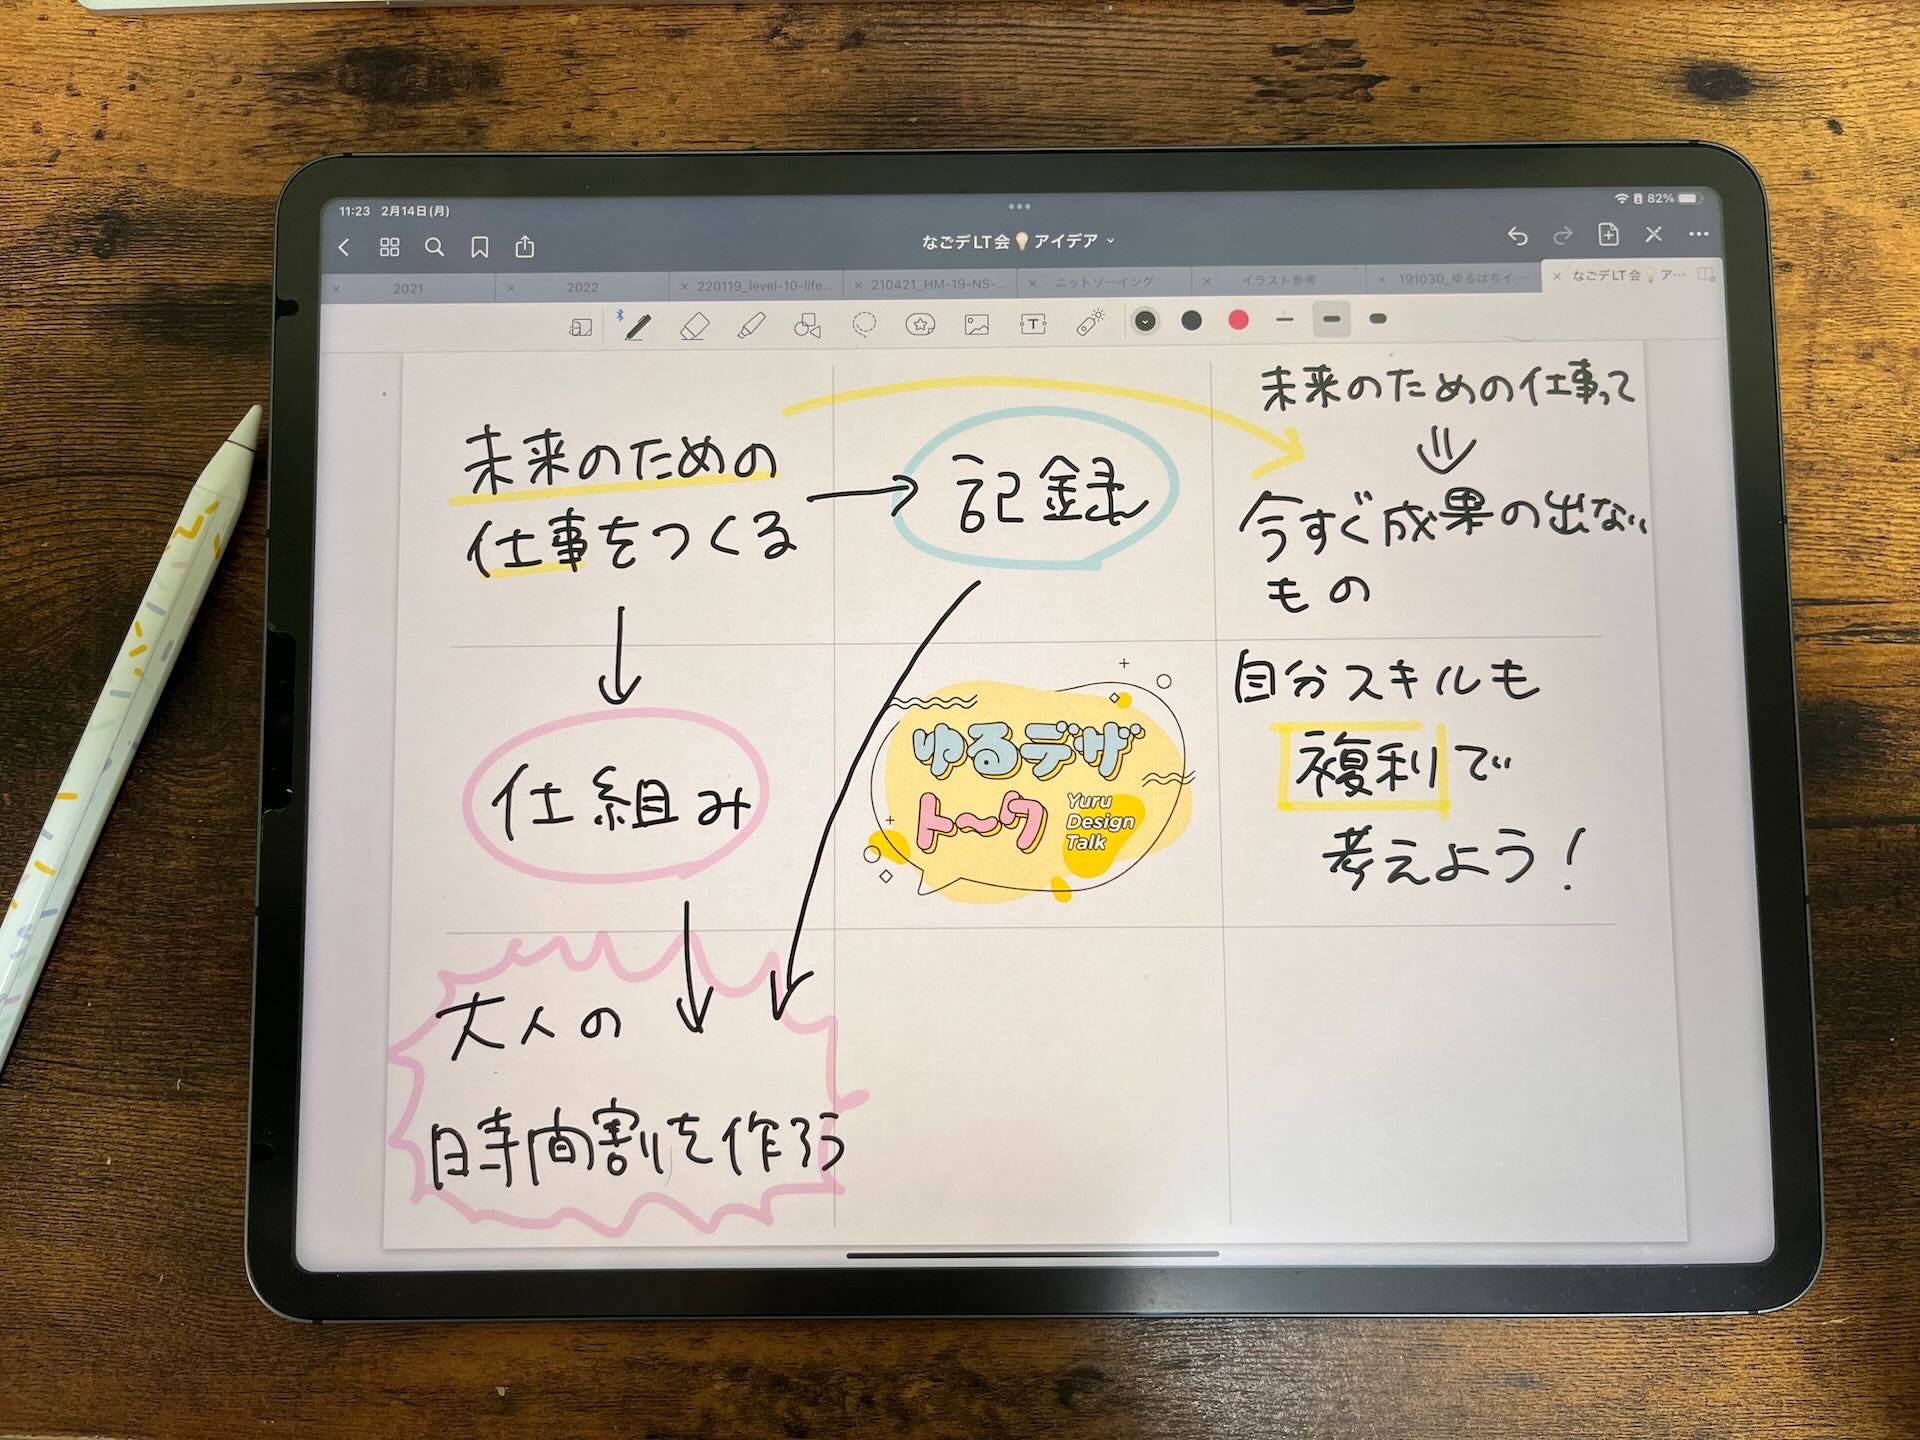 11:23 2月14日(月)
82%
なごデLT会💡アイデア
2021
2022
220119_level-10-life...
210421_HM-19-NS-...
ニットソーイング
イラスト参考
191030_ゆるはちイ...
なごデLT会💡ア...
T
未来のための
仕事をつくる
記録
未来のための仕事って
今すぐ成果の出ない
もの
仕組み
ゆるデザ
トーク
Yuru
Design
Talk
自分スキルも
複利で
考えよう!
大人の
時間割を作ろう